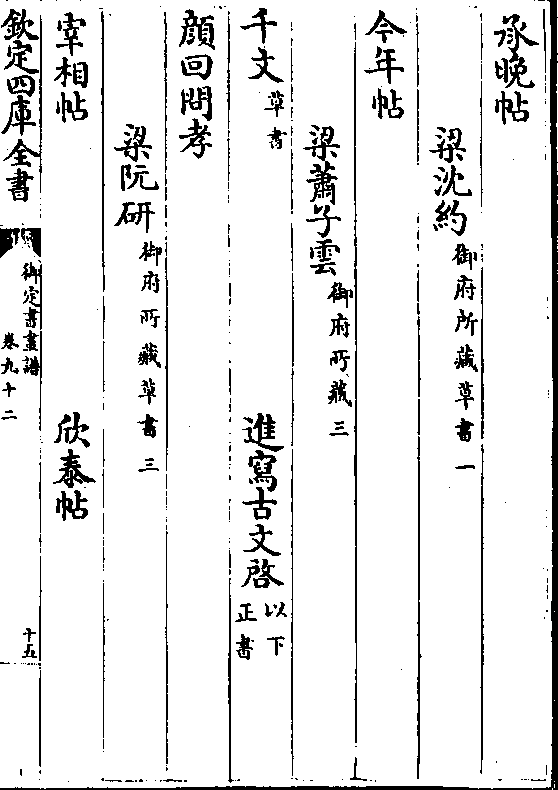 承晚帖
梁沈約御府所藏草書一
今年帖
梁蕭子雲御府所藏三
千文草書 進寫古文啓以下正書
顔回問孝
梁阮研御府所藏草書三
宰相帖 欣泰帖
欽定四庫全書 御定書畫譜 卷九十二 十五